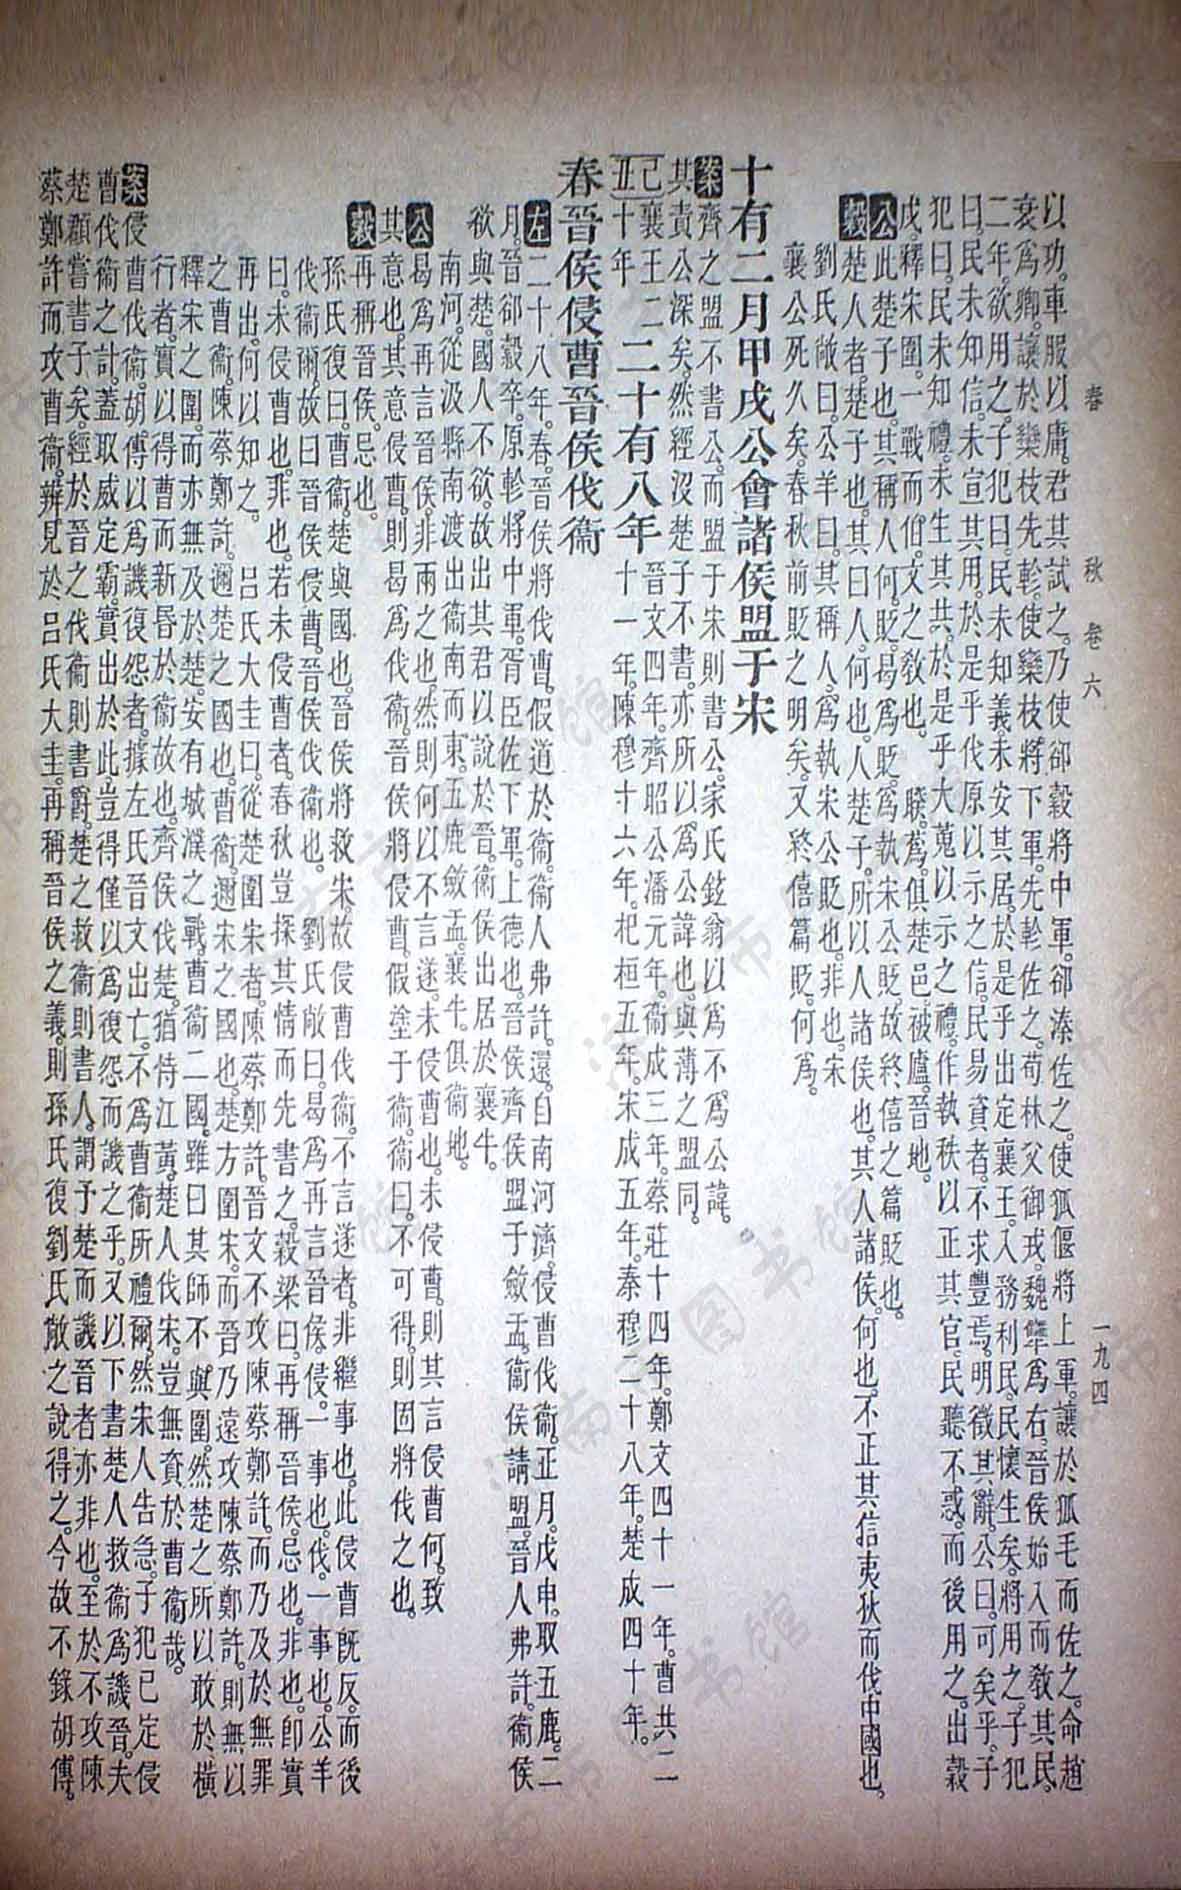 春 秋 卷六 一九四
以功。車服以庸。君其試之。乃使郤縠將中軍。郤溱佐之。使狐偃將上軍。讓於狐毛而佐之。命趙
衰爲卿。讓於欒枝先軫。使欒枝將下軍。先軫佐之。荀林父御戎。魏犨爲右。晉侯始入而敎其民。
二年。欲用之。子犯曰。民未知義。未安其居。於是乎出定襄王。入務利民。民懷生矣。將用之。子犯
曰。民未知信。未宣其用。於是乎伐原以示之信。民易資者。不求豐焉。明徵其辭。公曰。可矣乎。子
犯曰。民未知禮。未生其共。於是乎大蒐以示之禮。作執秩以正其官。民聽不惑。而後用之。出穀
戍。釋宋圍。一戰而伯。文之敎也。 睽。蔿。俱楚邑。被廬。晉地。
公此楚子也。其稱人何。貶。曷爲貶。爲執宋公貶。故終僖之篇貶也。
穀楚人者。楚子也。其曰人。何也。人楚子。所以人諸侯也。其人諸侯。何也。不正其信夷狄而伐中國也。
劉氏敞曰。公羊曰。其稱人。爲執宋公貶也。非也。宋
襄公死久矣。春秋前貶之明矣。又終僖篇貶。何爲。
十有二月甲戌公會諸侯盟于宋
案齊之盟不書公。而盟于宋則書公。家氏鉉翁以爲不爲公諱。
其責公深矣。然經沒楚子不書。亦所以爲公諱也。與薄之盟同。
己丑 襄王二十年 二十有八年 晉文四年。齊昭公潘元年。衞成三年。蔡莊十四年。鄭文四十一年。曹共二
十一年。陳穆十六年。杞桓五年。宋成五年。秦穆二十八年。楚成四十年。
春晉侯侵曹晉侯伐衞
左二十八年。春。晉侯將伐曹。假道於衞。衞人弗許。還。自南河濟。侵曹伐衞。正月。戊申。取五鹿。二
月。晉郤縠卒。原軫將中軍。胥臣佐下軍。上德也。晉侯齊侯盟于斂盂。衞侯請盟。晉人弗許。衞侯
欲與楚。國人不欲。故出其君以說於晉。衞侯出居於襄牛。
南河。從汲縣南渡出衞南而東。五鹿。斂盂。襄牛。俱衞地。
公曷爲再言晉侯。非兩之也。然則何以不言遂。未侵曹也。未侵曹。則其言侵曹何。致
其意也。其意侵曹。則曷爲伐衞。晉侯將侵曹。假塗于衞。衞曰。不可得。則固將伐之也。
穀再稱晉侯。忌也。
孫氏復曰。曹衞。楚與國也。晉侯將救宋。故侵曹伐衞。不言遂者。非繼事也。此侵曹旣反。而後
伐衞爾。故曰晉侯侵曹。晉侯伐衞也。 劉氏敞曰。曷爲再言晉侯。侵。一事也。伐。一事也。公羊
曰。未侵曹也。非也。若未侵曹者。春秋豈探其情而先書之。穀梁曰。再稱晉侯。忌也。非也。卽實
再出。何以知之。 呂氏大圭曰。從楚圍宋者。陳蔡鄭許。晉文不攻陳蔡鄭許。而乃及於無罪
之曹衞。陳蔡鄭許。邇楚之國也。曹衞。邇宋之國也。楚方圍宋。而晉乃遠攻陳蔡鄭許。則無以
釋宋之圍。而亦無及於楚。安有城濮之戰。曹衞二國。雖曰其師不與圍。然楚之所以敢於橫
行者。實以得曹而新昏於衞故也。齊侯伐楚。猶待江黃。楚人伐宋。豈無資於曹衞哉。
案侵曹伐衞。胡傳以爲譏復怨者。據左氏晉文出亡。不爲曹衞所禮爾。然宋人告急。子犯已定侵
曹伐衞之計。蓋取威定霸。實出於此。豈得僅以爲復怨而譏之乎。又以下書楚人救衞爲譏晉。夫
楚顏嘗書子矣。經於晉之伐衞則書爵。楚之救衞則書人。謂予楚而譏晉者亦非也。至於不攻陳
蔡鄭許而攻曹衞。辨見於呂氏大圭。再稱晉侯之義。則孫氏復劉氏敞之說得之。今故不錄胡傳。